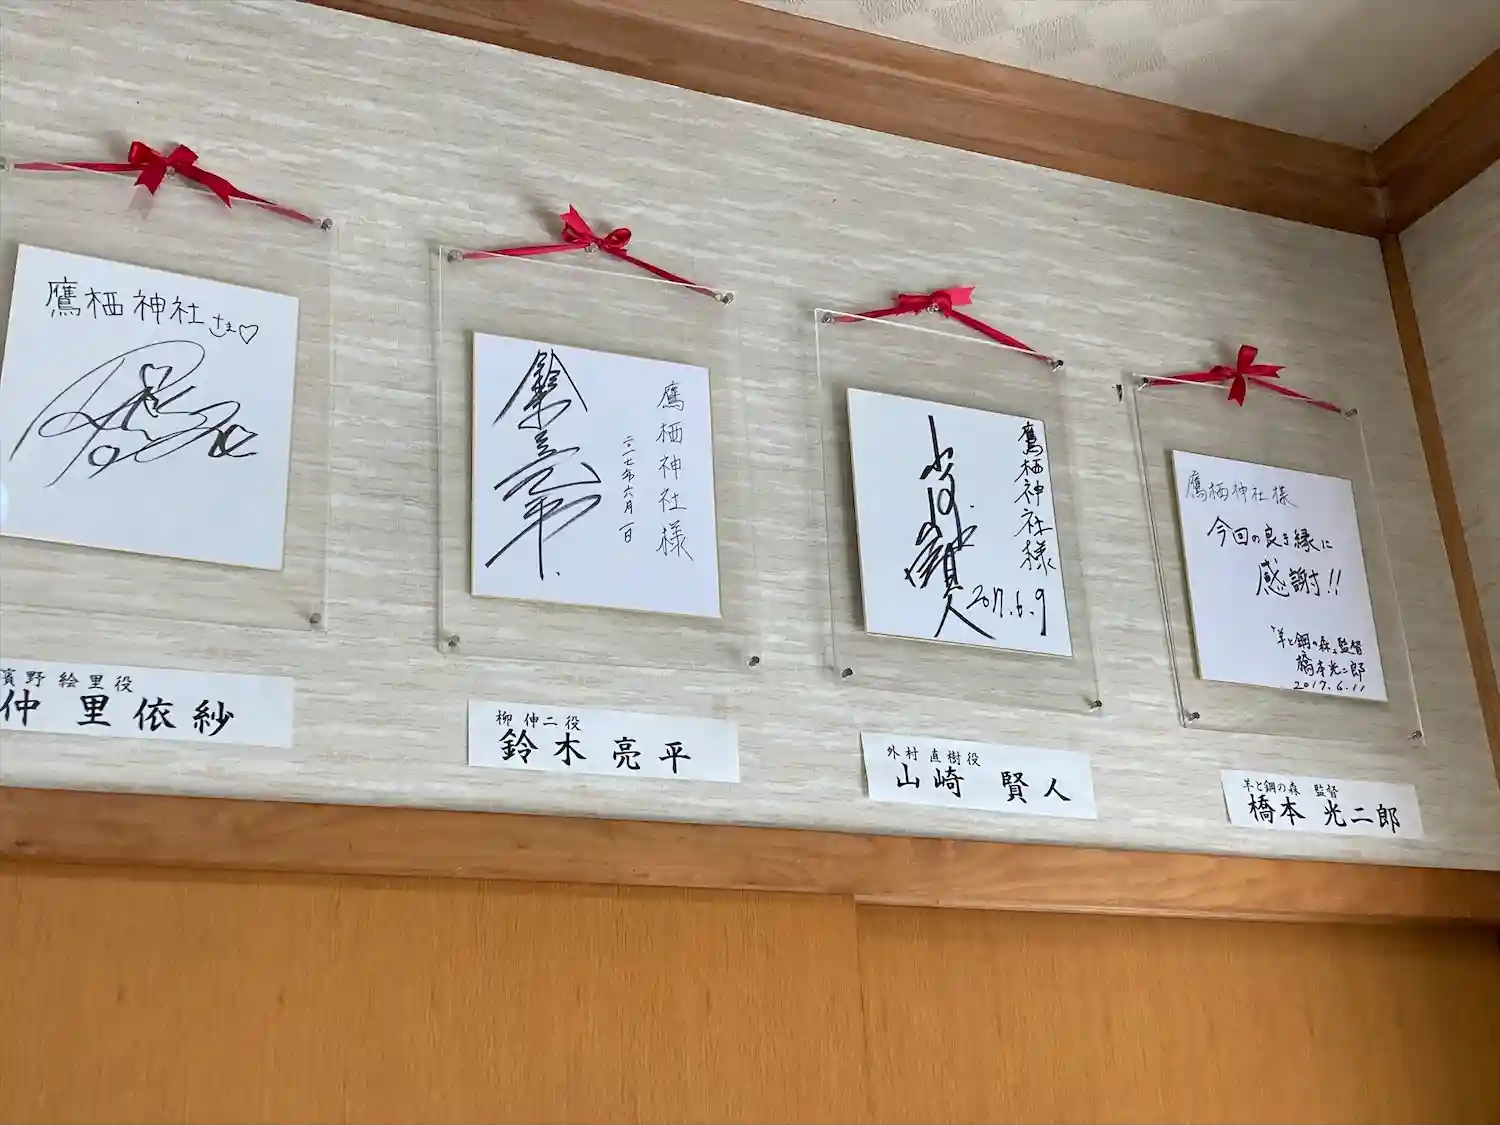 鷹栖神社さま♡
濱野絵里役
仲 里依紗
鷹栖神社様
二〇一七年六月一日
鈴木亮平
柳 伸二 役
鈴木 亮平
鷹栖神社様
山﨑賢人
2017.6.9
外村 直樹役
山崎 賢人
鷹栖神社様
今回の良き縁に
感謝!!
『羊と鋼の森』監督
橋本光二郎
2017.6.11
羊と鋼の森 監督
橋本 光二郎